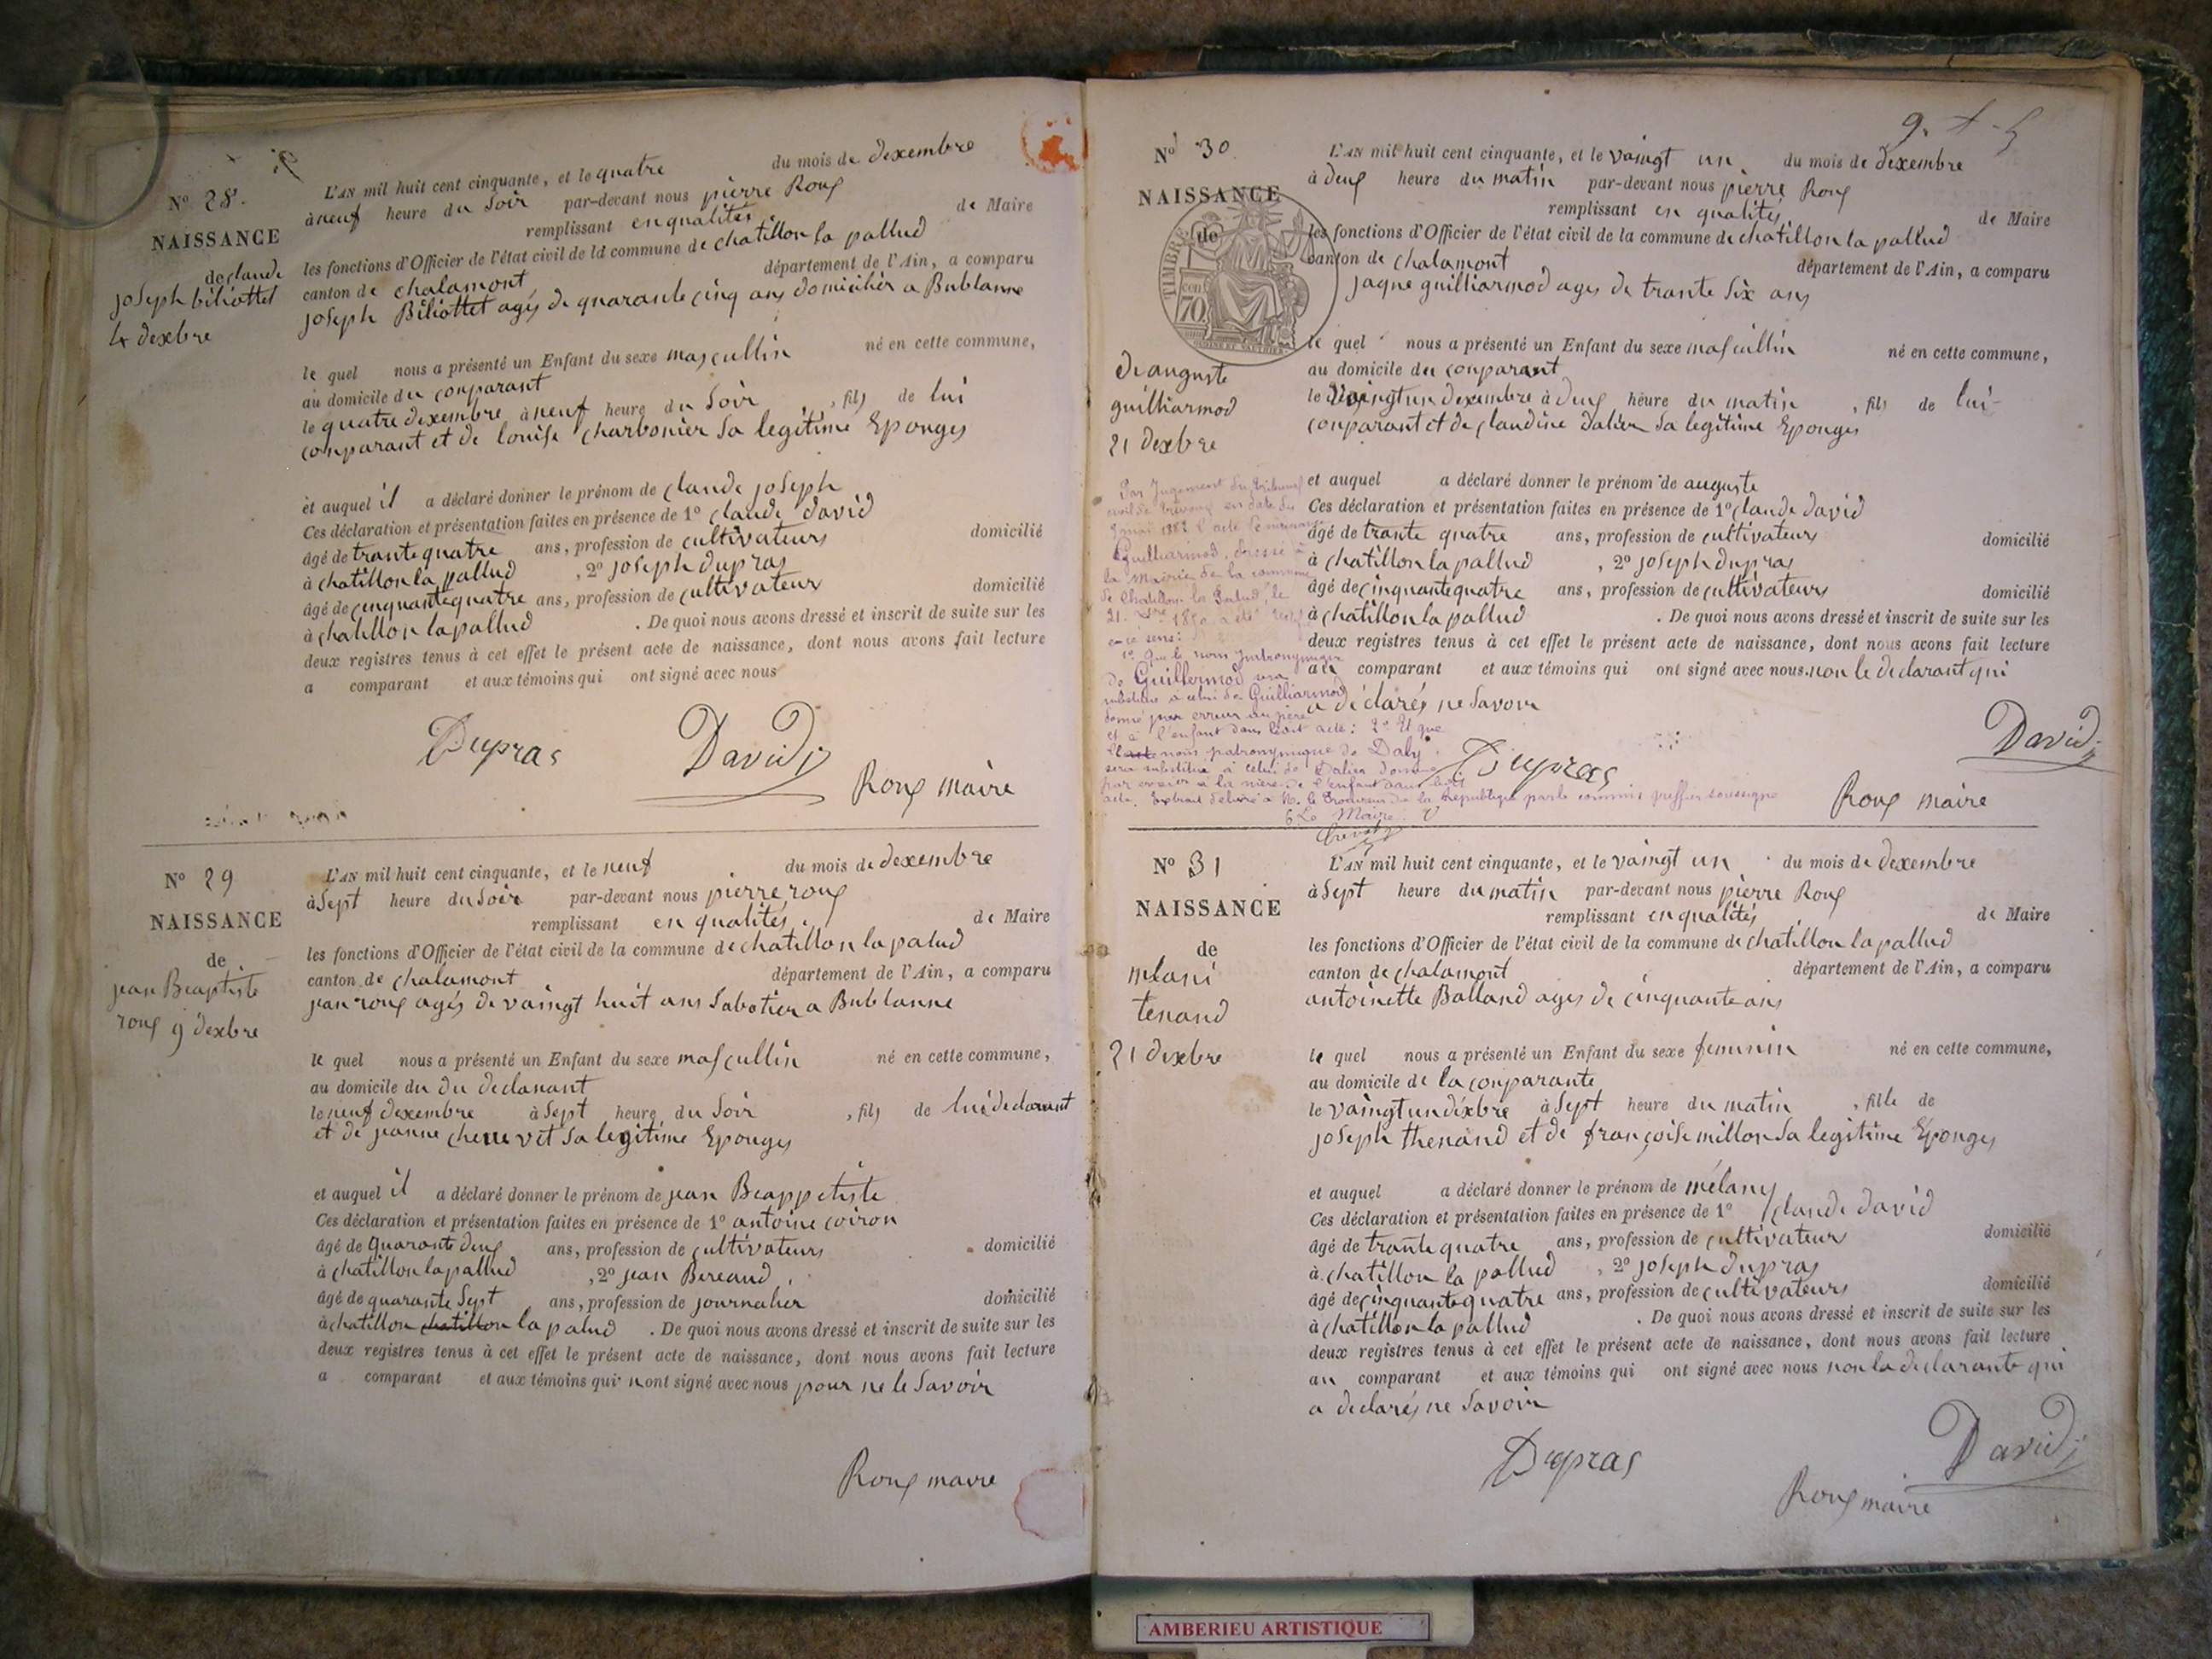 No 28.
NAISSANCE
de claude
joseph biliottet
4 dexbre
L'AN mil huit cent cinquante, et le quatre du mois de dexembre
à neuf heure du Soir par-devant nous pierre Roux
remplissant en qualités de Maire
les fonctions d'Officier de l'état civil de la commune de chatillon la pallud
canton de chalamont département de l'Ain, a comparu
joseph Biliottet agés de quarante cinq ans domiciliér a Bublanne
le quel nous a présenté un Enfant du sexe mascullin né en cette commune,
au domicile du conparant
le quatre dexembre à neuf heure du Soir, fils de lui
conparant et de louise charbonier Sa legitime Epouges
et auquel il a déclaré donner le prénom de claude joseph
Ces déclaration et présentation faites en présence de 1º claude david
âgé de trante quatre ans, profession de cultivateurs domicilié
à chatillon la pallud, 2º joseph dupras
âgé de cinquante quatre ans, profession de cultivateur domicilié
à chatillon la pallud. De quoi nous avons dressé et inscrit de suite sur les
deux registres tenus à cet effet le présent acte de naissance, dont nous avons fait lecture
a comparant et aux témoins qui ont signé avec nous
Dupras David Roux maire
No 29
NAISSANCE
de
jean Beaptiste
roux 9 dexbre
L'AN mil huit cent cinquante, et le neuf du mois de dexembre
à Sept heure du Soir par-devant nous pierre roux
remplissant en qualités de Maire
les fonctions d'Officier de l'état civil de la commune de chatillon la palud
canton de chalamont département de l'Ain, a comparu
jean roux agés de vaingt huit ans Sabotier a Bublanne
le quel nous a présenté un Enfant du sexe mascullin né en cette commune,
au domicile du du declarant
le neuf dexembre à Sept heure du Soir, fils de lui declarant
et de jeanne chenevet Sa legitime Epouges
et auquel il a déclaré donner le prénom de jean Beappetiste
Ces déclaration et présentation faites en présence de 1º antoine coiron
âgé de quarante deux ans, profession de cultivateurs domicilié
à chatillon la pallud, 2º jean Bereaud
âgé de quarante Sept ans, profession de journalier domicilié
à chatillon chatillon la palud. De quoi nous avons dressé et inscrit de suite sur les
deux registres tenus à cet effet le présent acte de naissance, dont nous avons fait lecture
a comparant et aux témoins qui nont signé avec nous pour ne le Savoir
Roux maire
No 30
NAISSANCE
de
TIMBRE
70
de auguste
guilliarmod
21 dexbre
L'AN mil huit cent cinquante, et le vaingt un du mois de dexembre
à deux heure du matin par-devant nous pierre Roux
remplissant en qualités de Maire
les fonctions d'Officier de l'état civil de la commune de chatillon la pallud
canton de chalamont département de l'Ain, a comparu
jaque guilliarmod ages de trante Six ans
le quel nous a présenté un Enfant du sexe mascullin né en cette commune,
au domicile du conparant
le vaingt un dexembre à deux heure du matin, fils de lui
conparant et de claudine dalien Sa legitime Epouges
et auquel a déclaré donner le prénom de auguste
Ces déclaration et présentation faites en présence de 1º claude david
âgé de trante quatre ans, profession de cultivateurs domicilié
à chatillon la pallud, 2º joseph dupras
âgé de cinquante quatre ans, profession de cultivateurs domicilié
à chatillon la pallud. De quoi nous avons dressé et inscrit de suite sur les
deux registres tenus à cet effet le présent acte de naissance, dont nous avons fait lecture
au comparant et aux témoins qui ont signé avec nous non le declarant qui
a déclarés ne Savoir
Par Jugement du tribunal
civil de Trevoux en date du
l'acte de
Guilliarmod, dressé à
la Mairie de la commune
de Chatillon la Palud, le
21 Xbre 1850 a été
en ce sens:
1º Que le nom patronymique
de Guillermod sera
substitué à celui de Guilliarmod
donné par erreur au père
et à l'enfant dans ledit acte: 2º Et que
le nom patronymique de Daly
sera substitué à celui de Dalien donné
par erreur à la mère de l'enfant dans ledit
acte. Extrait délivré à M. le Procureur de la République par le commis greffier soussigné
Le Maire
Dupras David Roux maire
No 31
NAISSANCE
de
melani
tenand
21 dexbre
L'AN mil huit cent cinquante, et le vaingt un du mois de dexembre
à Sept heure du matin par-devant nous pierre Roux
remplissant en qualités de Maire
les fonctions d'Officier de l'état civil de la commune de chatillon la pallud
canton de chalamont département de l'Ain, a comparu
antoinette Balland ages de cinquante ans
le quel nous a présenté un Enfant du sexe feminin né en cette commune,
au domicile de la conparante
le vaingt un dexbre à Sept heure du matin, fille de
joseph thenand et de françoise millon Sa legitime Epouges
et auquel a déclaré donner le prénom de mélany
Ces déclaration et présentation faites en présence de 1º claude david
âgé de trante quatre ans, profession de cultivateurs domicilié
à chatillon la pallud, 2º joseph dupras
âgé de cinquante quatre ans, profession de cultivateurs domicilié
à chatillon la pallud. De quoi nous avons dressé et inscrit de suite sur les
deux registres tenus à cet effet le présent acte de naissance, dont nous avons fait lecture
au comparant et aux témoins qui ont signé avec nous non la declarante qui
a declarés ne Savoir
Dupras David
Roux maire
AMBERIEU ARTISTIQUE